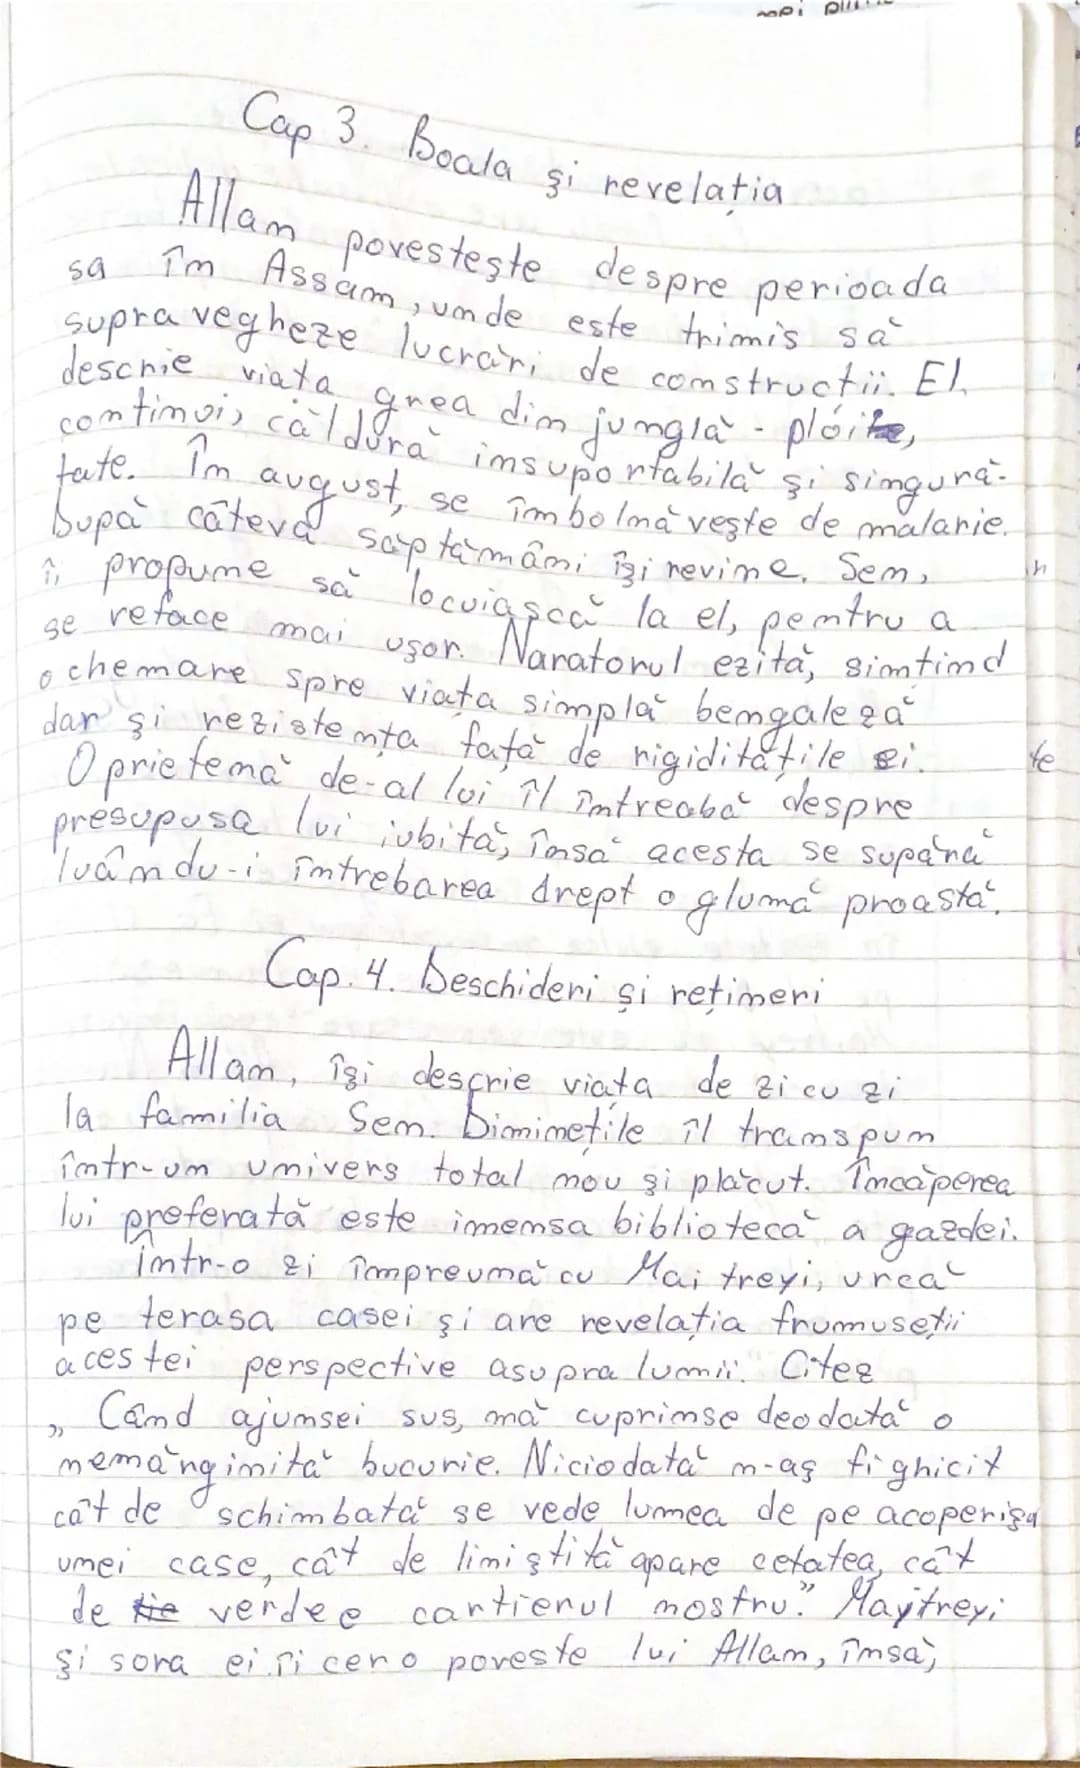 mai
Cap 3. Boala și revelația
Allan povestește despre perioada
sa în Assam, unde este trimis să
supravegheze lucrări de construcții. El
descrie viața grea din junglă - ploi
continui, căldură insuportabilă și singură-
tate. În august, se îmbolnăvește de malarie.
După câteva săptămâni își revine. Sen,
îi propune să locuiască la el, pentru a
se reface mai ușor. Naratorul ezită, simțind
o chemare spre viața simplă bengaleză
dar și rezistența față de rigiditățile ei.
O prietenă de-al lui îl întreabă despre
presupusa lui iubită, însă acesta se supără
luându-i întrebarea drept o glumă proastă.
Cap. 4. Deschideri și rețineri
Allan, își descrie viața de zi cu zi
la familia Sen. Diminețile îl transpun
într-un univers total nou și plăcut. Încăperea
lui preferată este imensa bibliotecă a gazdei.
Într-o zi împreună cu Maitreyi, urcă
pe terasa casei și are revelația frumuseții
acestei perspective asupra lumii. Citez
„Când ajunsei sus, mă cuprinse deodată o
nemărginită bucurie. Niciodată n-aș fi ghicit
cât de schimbată se vede lumea de pe acoperișu
unei case, cât de liniștită apare cetatea, cât
de verde e cartierul nostru." Maytreyi
și sora ei îi cer o poveste lui Allan, însă,